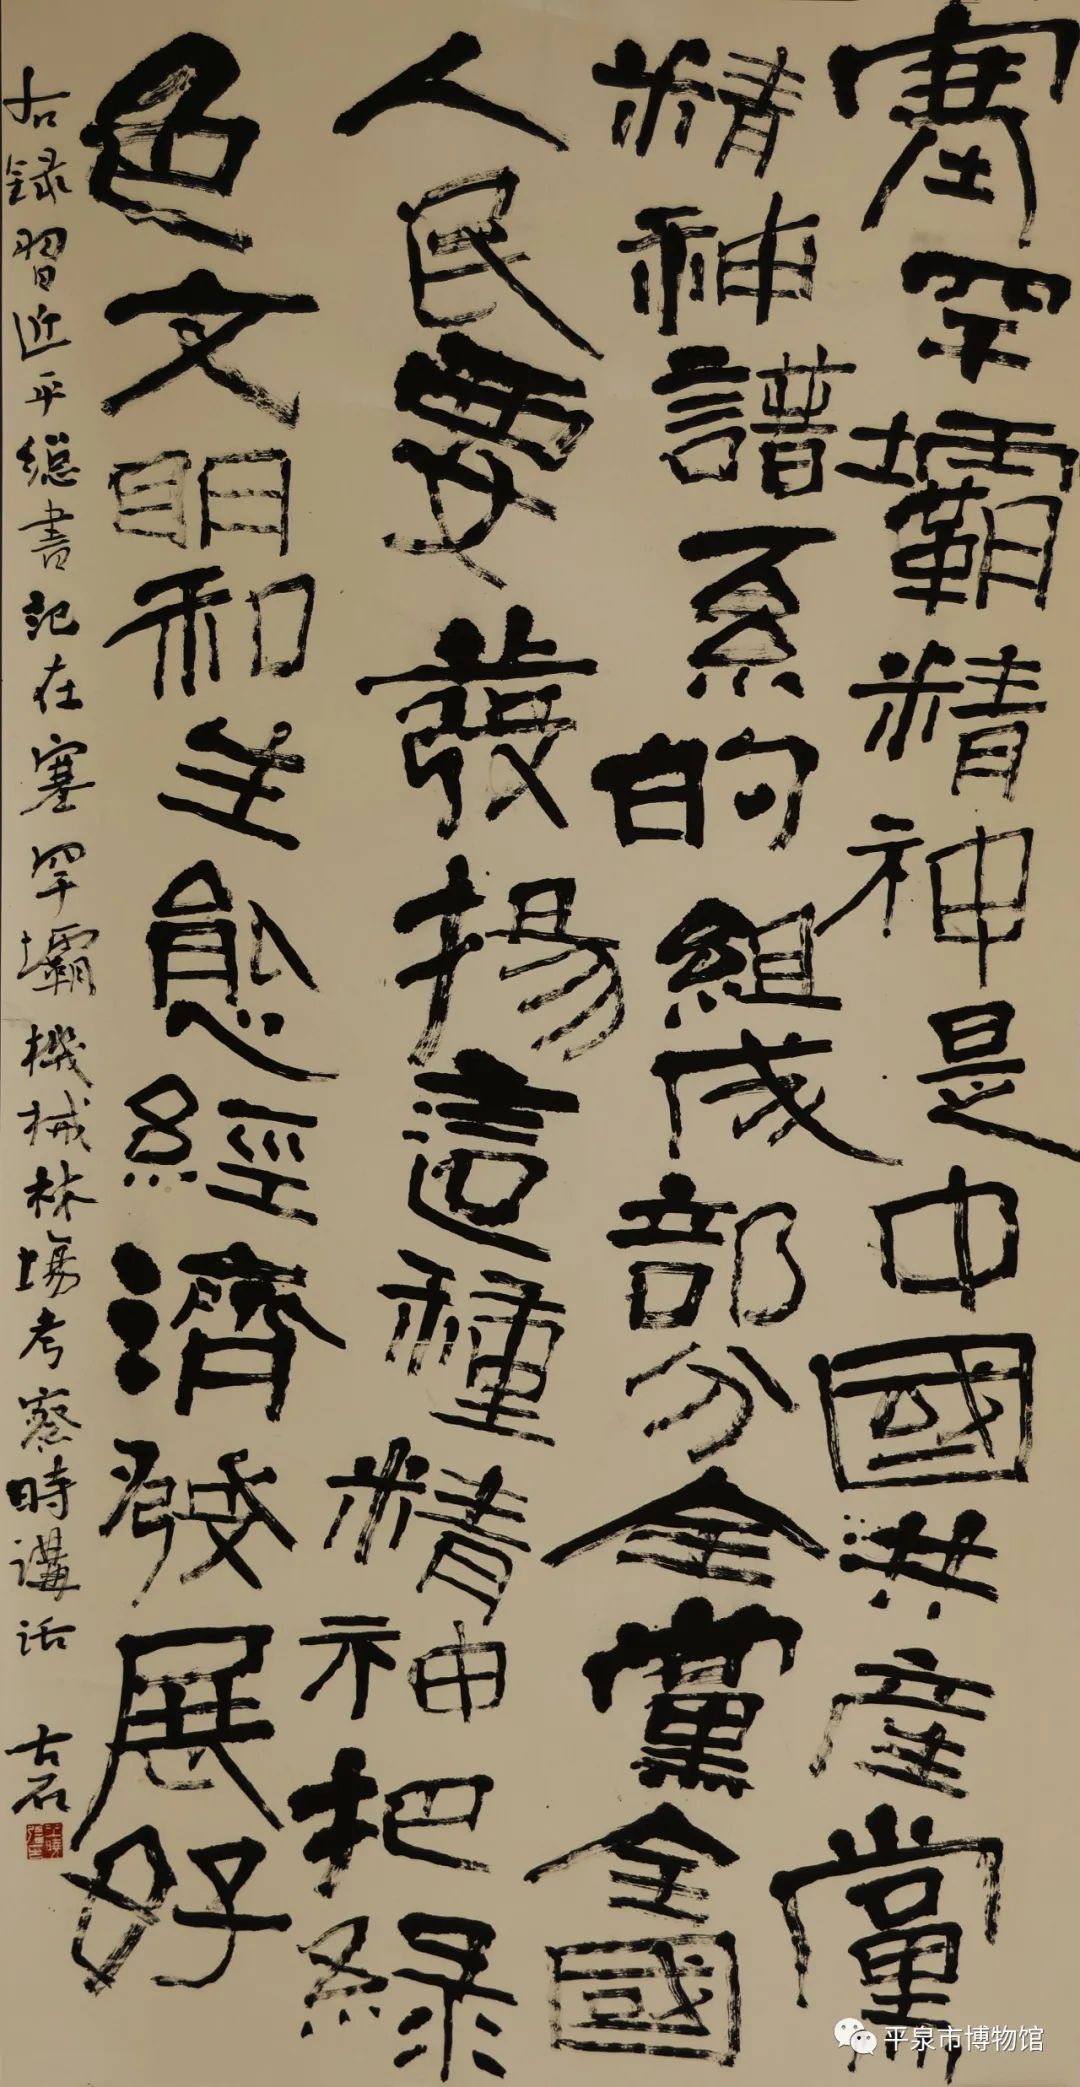 塞罕壩精神是中國共產黨
精神譜系的組成部分全黨全國
人民要發揚這種精神把綠
色文明和生態經濟發展好
右録習近平總書記在塞罕壩機械林場考察時講話
平泉市博物馆